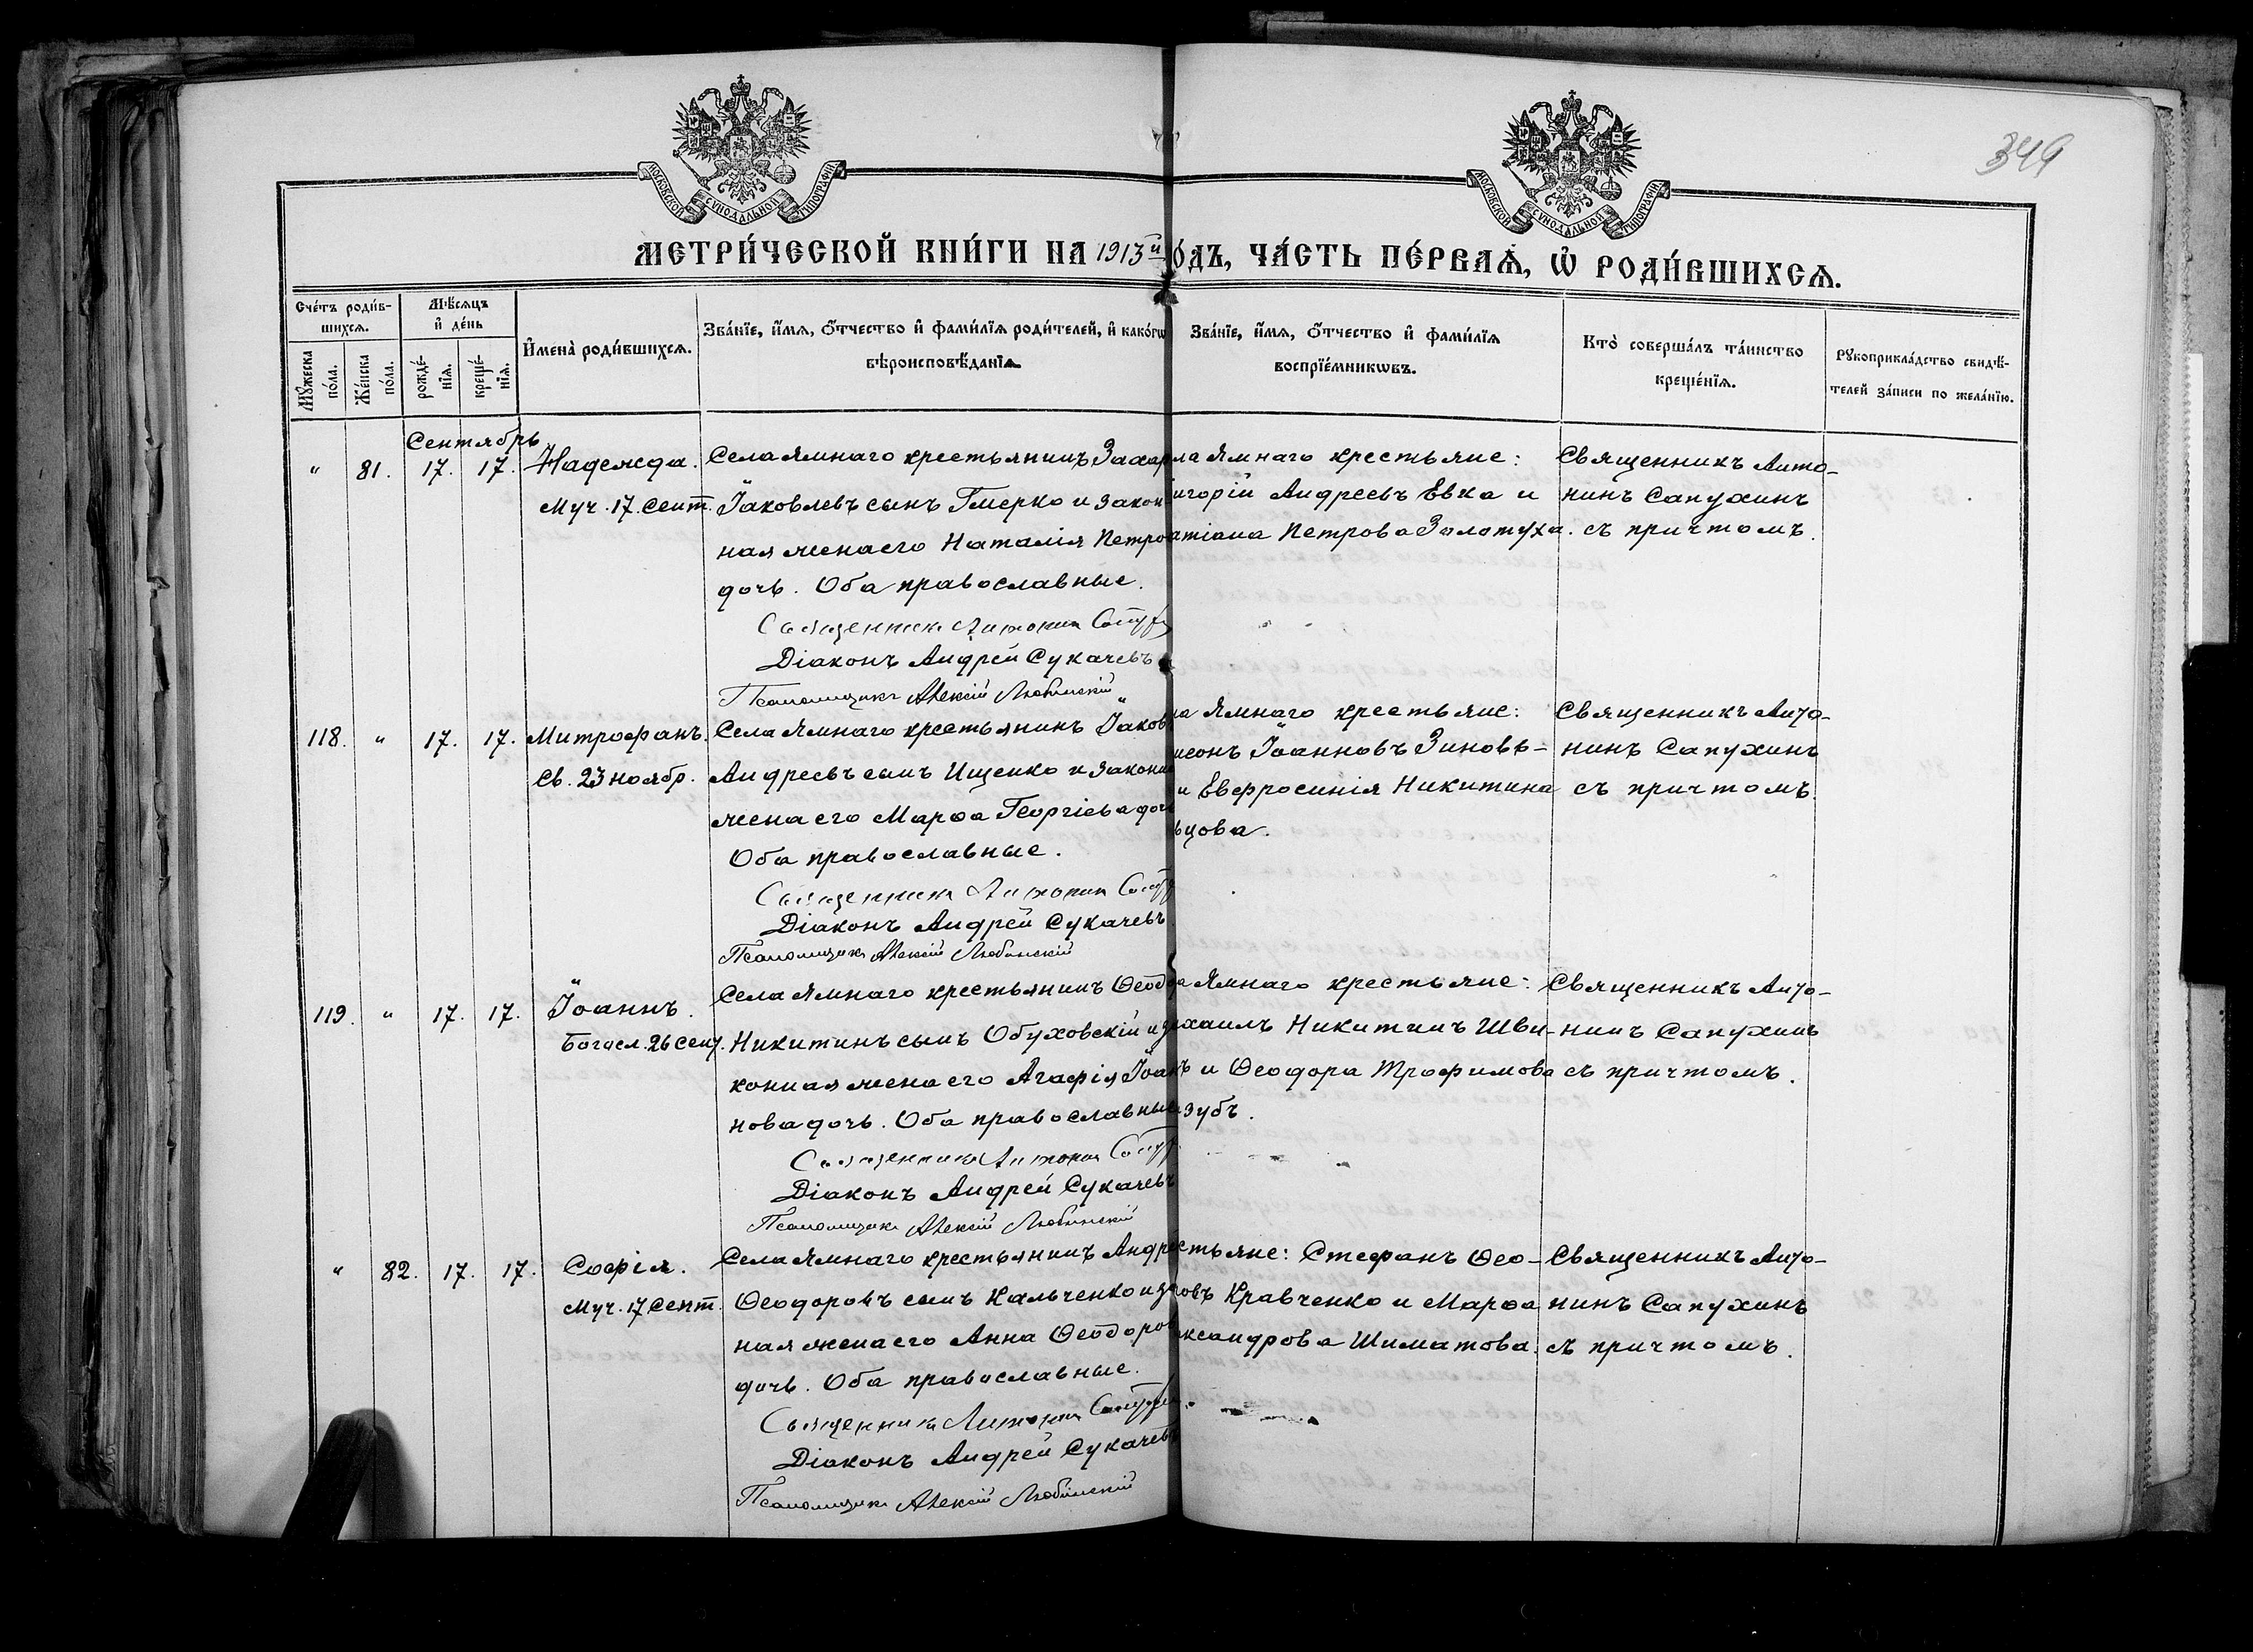 349
МОСКОВСКОЙ СѴНОДАЛЬНОЙ ТИПОГРАФІИ
МОСКОВСКОЙ СѴНОДАЛЬНОЙ ТИПОГРАФІИ
МЕТРИ́ЧЕСКОЙ КНИ́ГИ НА 1913й ОДЪ, ЧА́СТЬ ПЕ́РВАѦ, Ѡ РОДИ́ВШИХСѦ.
Сче́тъ роди́в-
шихсѧ.
Мѣ́сѧцъ
и де́нь
Мꙋ́жеска по́ла.
Же́нска по́ла.
рожде́-
нїѧ.
креще́-
нїѧ.
И҆мена̀ роди́вшихсѧ.
Зва́нїе, и҆́мѧ, ѻ҆́тчество и҆ фами́лїѧ роди́телей, и҆ како́гѡ
вѣроисповѣ́данїѧ.
Зва́нїе, и҆́мѧ, ѻ҆́тчество и҆ фами́лїѧ
воспрїе́мникѡвъ.
Кто̀ соверша́лъ та́инство
креще́нїѧ.
Рꙋкоприкла́дство свидѣ́-
телей за́писи по жела́нїю.
Сентябрь
" 81. 17. 17. Надежда.
Муч. 17. Сент.
Села Ямнаго крестьянинъ Захар
Іаковлевъ сынъ Гмерко и закон
ная жена его Наталія Петро
дочь. Оба православные.
Священникъ Антонин
Діаконъ Андрей Сукачевъ
Псаломщикъ Алексій Любинскій
ла Ямнаго крестьяне:
игорій Андреевъ Евка и
атіана Петрова Золотуха.
Священникъ Анто-
нинъ Сапухинъ
съ причтомъ.
118. " 17. 17. Митрофанъ.
Св. 23 ноябр.
Села Ямнаго крестьянинъ Іаков
Андреевъ сынъ Ищенко и законн
жена его Марѳа Георгіева дочь
Оба православные.
Священникъ Антонин
Діаконъ Андрей Сукачевъ
Псаломщикъ Алексій Любинскій
ла Ямнаго крестьяне:
мсонъ Іоанновъ Зиновь-
и Евфросинія Никитина
ьцова.
Священникъ Анто-
нинъ Сапухинъ
съ причтомъ.
119. " 17. 17. Іоаннъ.
Богосл. 26 Сент.
Села Ямнаго крестьянинъ Ѳеодо
Никитинъ сынъ Обуховскій и за
конная жена его Агафія Іоан
нова дочь. Оба православные
Священникъ Антонин
Діаконъ Андрей Сукачевъ
Псаломщикъ Алексій Любинскій
а Ямнаго крестьяне:
хаилъ Никитинъ Шви-
ъ и Ѳеодора Трофимова
зубъ.
Священникъ Анто-
нинъ Сапухинъ
съ причтомъ.
" 82. 17. 17. Софія.
Муч. 17 Сент.
Села Ямнаго крестьянинъ Андре
Ѳеодоровъ сынъ Кальченко и за
ная жена его Анна Ѳеодоров
дочь. Оба православные.
Священникъ Антонин
Діаконъ Андрей Сукачевъ
Псаломщикъ Алексій Любинскій
стьяне: Стефанъ Ѳео-
ровъ Кравченко и Марѳа
ександрова Шиматова.
Священникъ Анто-
нинъ Сапухинъ
съ причтомъ.